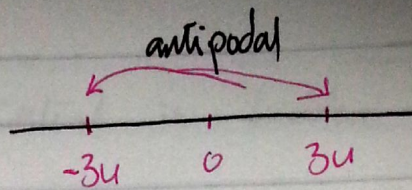 antipodal
-3u 0 3u